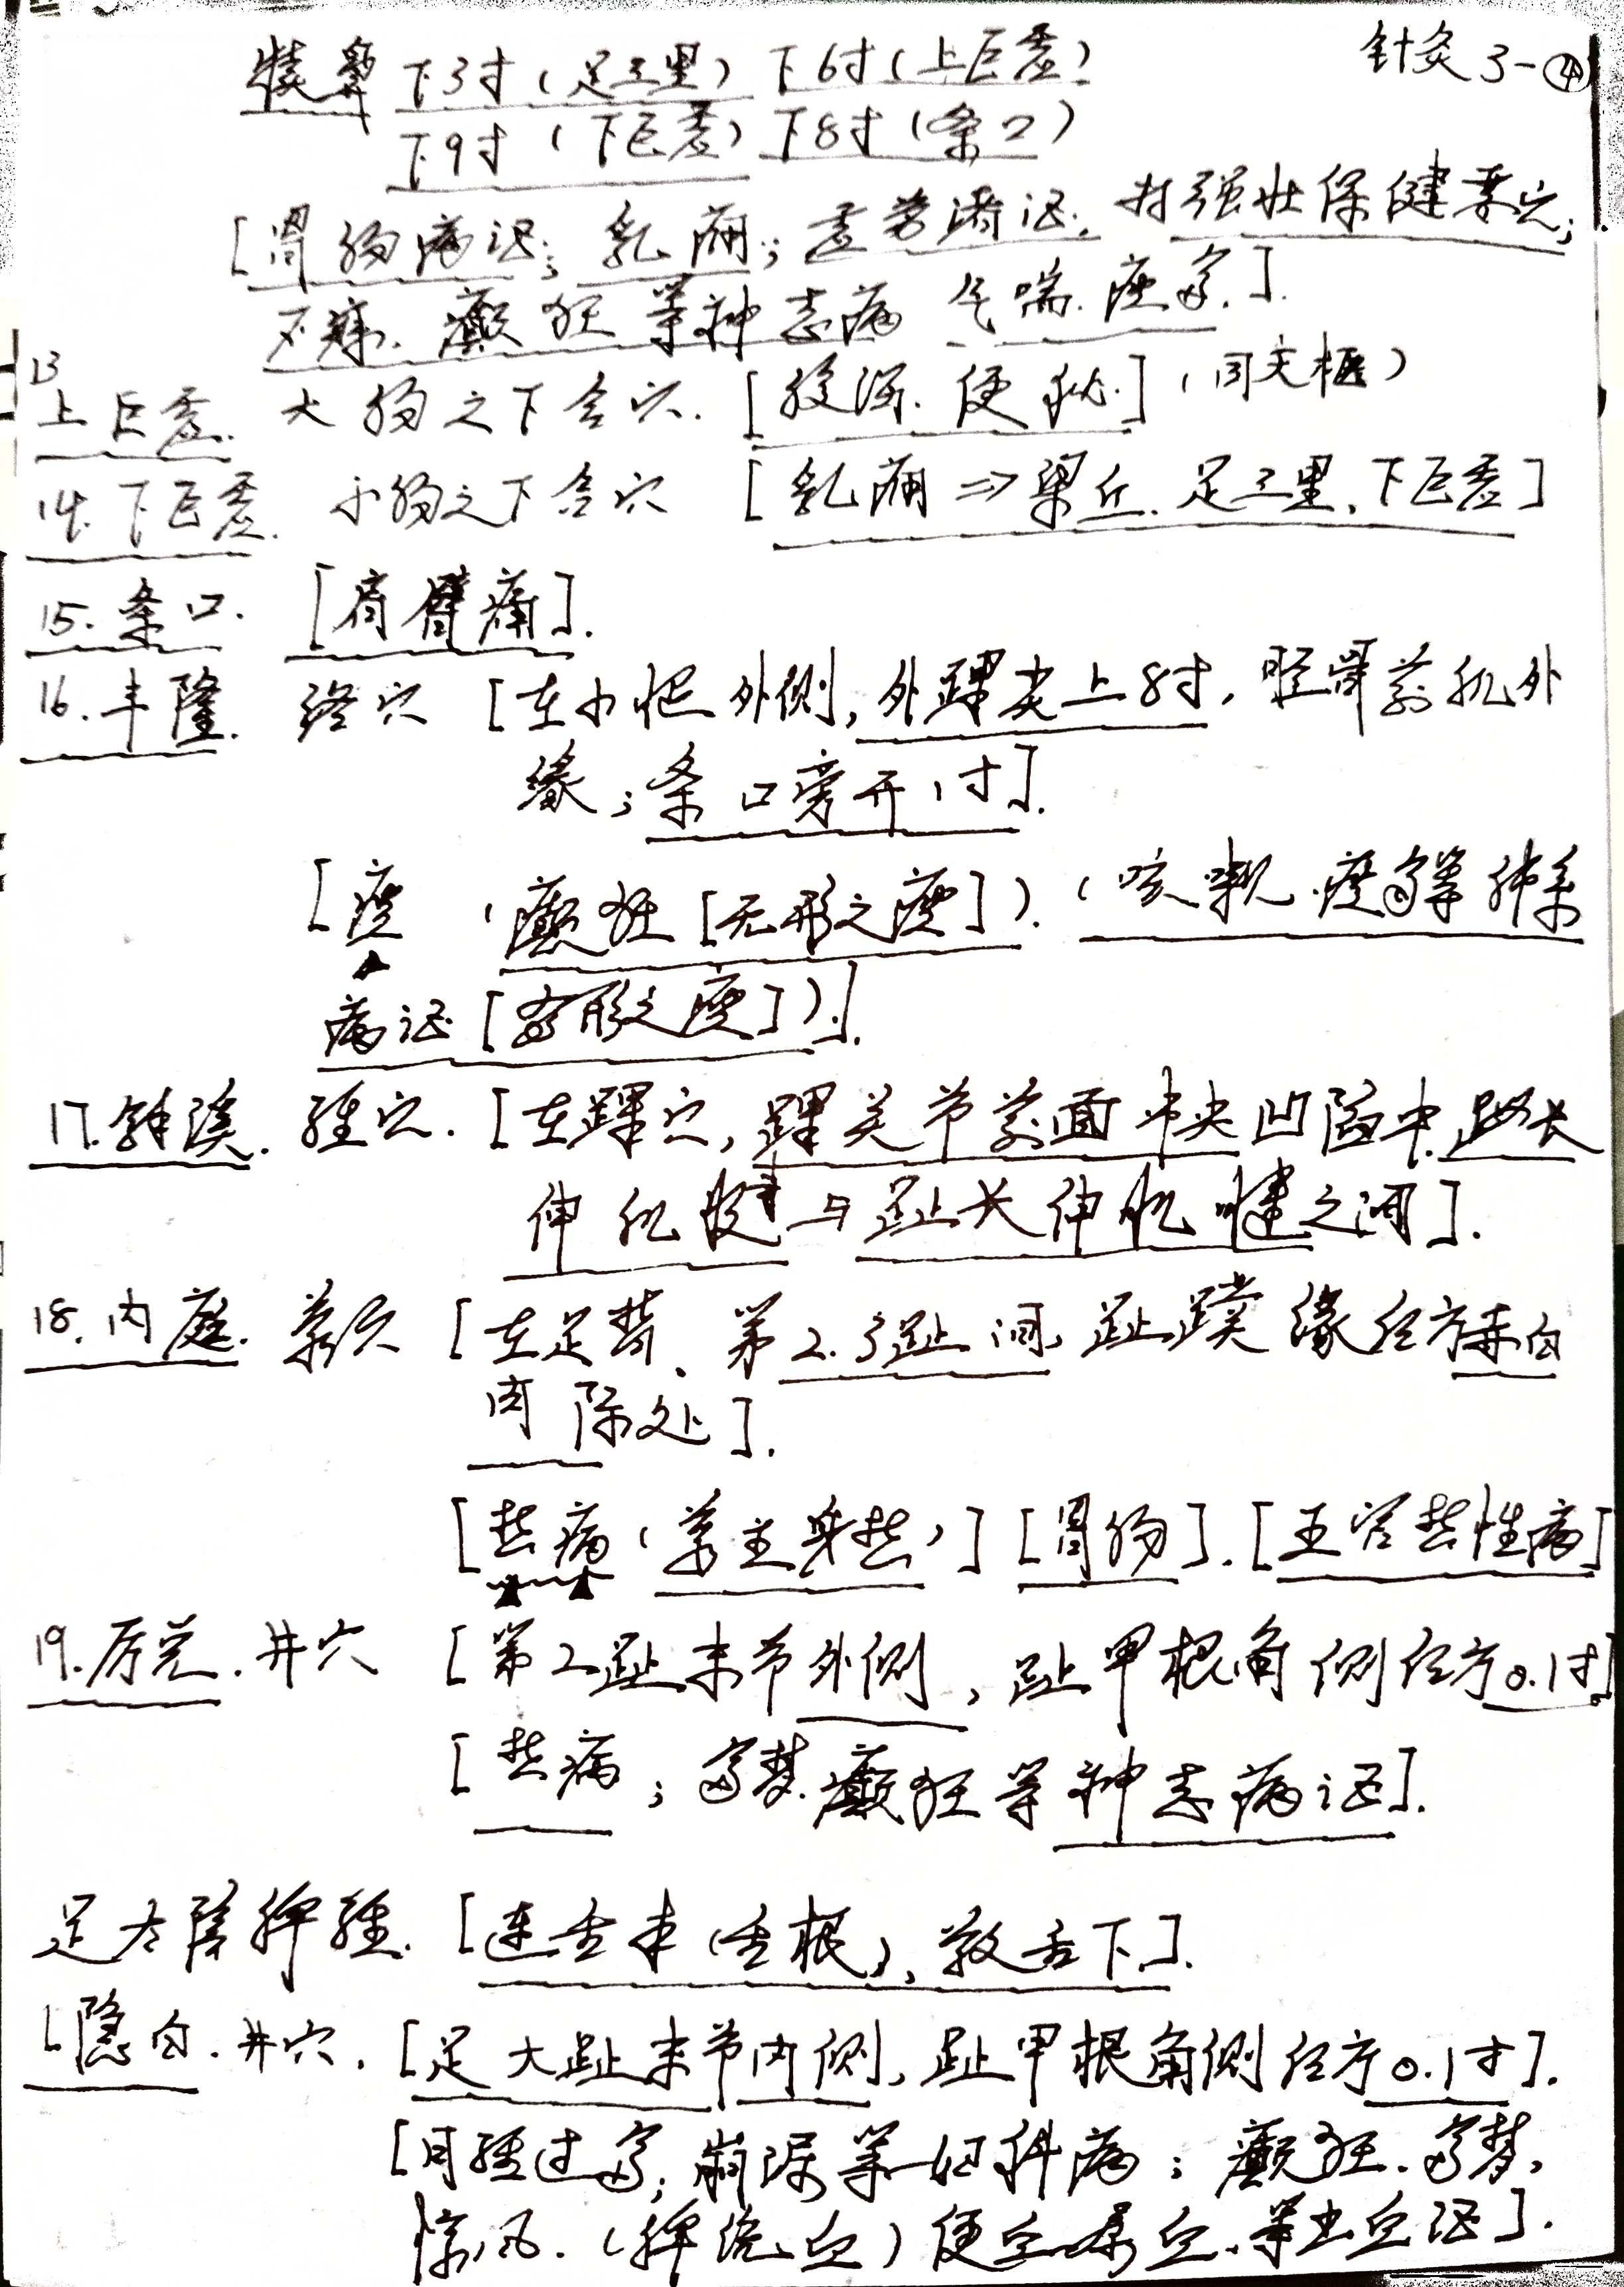 针灸 3-④
犊鼻 下3寸(足三里) 下6寸(上巨虚)
下9寸(下巨虚) 下8寸(条口)
[胃肠病证; 乳痈; 虚劳诸证, 为强壮保健要穴;
不寐. 癫狂等神志病 气喘. 痰多.].
13
上巨虚. 大肠之下合穴. [腹泻. 便秘.] (同天枢)
14. 下巨虚. 小肠之下合穴 [乳痈⇒梁丘. 足三里, 下巨虚]
15. 条口. [肩臂痛].
16. 丰隆. 络穴 [在小腿外侧, 外踝尖上8寸, 胫骨前肌外
缘; 条口旁开1寸].
[痰 (癫狂[无形之痰]). (咳嗽. 痰多等肺系
病证[有形之痰])].
17. 解溪. 经穴. [在踝穴, 踝关节前面中央凹陷中, 𧿹长
伸肌腱与趾长伸肌腱之间].
18. 内庭. 荥穴 [在足背、第2.3趾间, 趾蹼缘后方赤白
肉际处].
[热病(荥主身热)] [胃肠]. [五官热性病]
19. 厉兑. 井穴 [第2趾末节外侧, 趾甲根角侧后方0.1寸]
[热病; 多梦. 癫狂等神志病证].
足太阴脾经. [连舌本(舌根), 散舌下.].
1. 隐白. 井穴. [足大趾末节内侧, 趾甲根角侧后方0.1寸].
[月经过多; 崩漏等妇科病; 癫狂. 多梦,
惊风. (脾统血) 便血尿血. 等出血证].